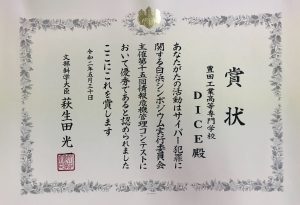 賞状
豊田工業高等専門学校
DICE 殿
あなたがたの活動はサイバー犯罪に
関する白浜シンポジウム実行委員会
主催第十五回情報危機管理コンテストに
おいて優秀であると認められました
ここにこれを賞します
令和二年五月三十日
文部科学大臣 萩生田光一